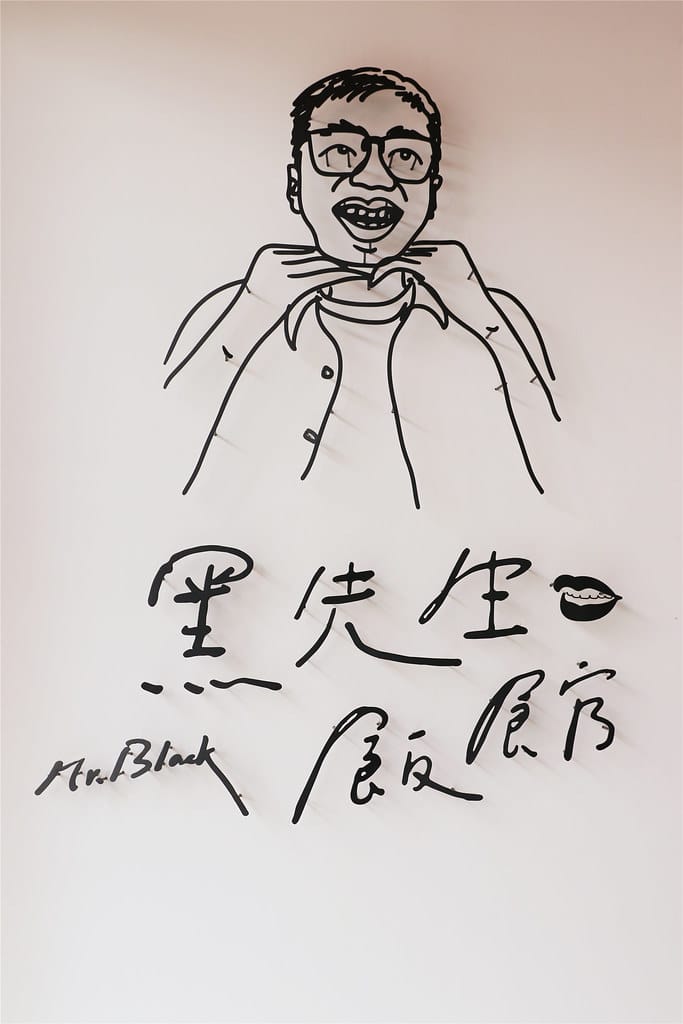 黑先生
飯館
Mr.Black